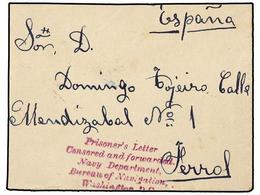 España
Sor. D.
Domingo Tojeiro, Calle
Mendizabal No. 1
Ferrol
Prisoner's Letter
Censored and forwarded.
Navy Department,
Bureau of Navigation,
Washington, D.C.